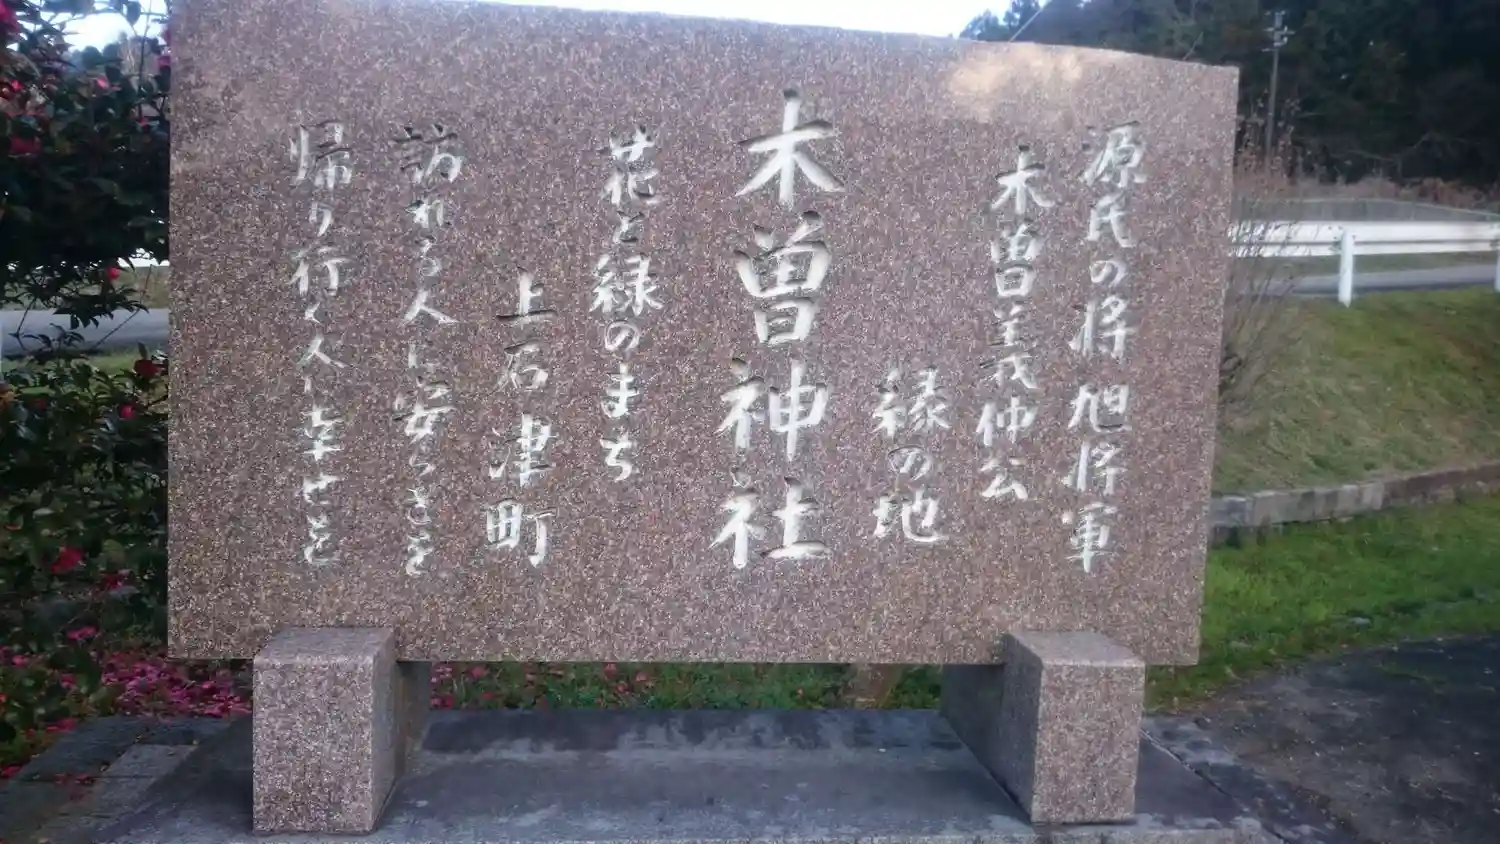 源氏の将旭将軍
木曽義仲公
縁の地
木曽神社
花と緑のまち
上石津町
訪れる人に安らぎを
帰り行く人に幸せを